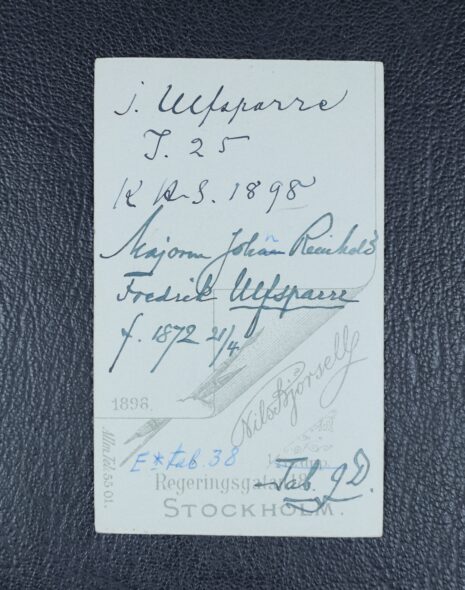 J. Ulfsparre
I. 25
K A-S. 1898
Majoren Johan Reinhold
Fredrik Ulfsparre
f. 1872 21/4
1898.
Nils Björsell
Allm. Tel. 55 01.
E* tab. 38
Regeringsgatan
Tab. 9D.
STOCKHOLM.